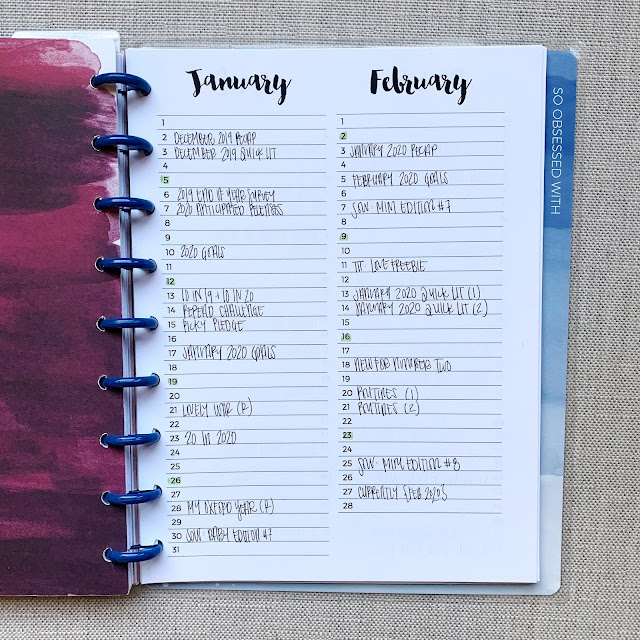 January
1
2 DECEMBER 2019 RECAP
3 DECEMBER 2019 QUICK LIT
4
5
6 2019 END OF YEAR SURVEY
7 2020 ANTICIPATED RELEASES
8
9
10 2020 GOALS
11
12
13 10 IN 19 + 10 IN 20
14 REREAD CHALLENGE
15 PICKY PLEDGE
16
17 JANUARY 2020 GOALS
18
19
20
21 LOVELY (R)
22
23 20 IN 2020
24
25
26
27
28 MY YEAR (R)
29
30 SOW: BABY EDITION #7
31
February
1
2
3 JANUARY 2020 RECAP
4
5 FEBRUARY 2020 GOALS
6
7 SOW: MIMI EDITION #7
8
9
10
11 TIT: LOVE FREEBIE
12
13 JANUARY 2020 QUICK LIT (1)
14 JANUARY 2020 QUICK LIT (2)
15
16
17
18 NEW FOR NUMBER TWO
19
20 ROUTINES (1)
21 ROUTINES (2)
22
23
24
25 SOW: MIMI EDITION #8
26
27 CURRENTLY {FEB 2020}
28
SO OBSESSED WITH